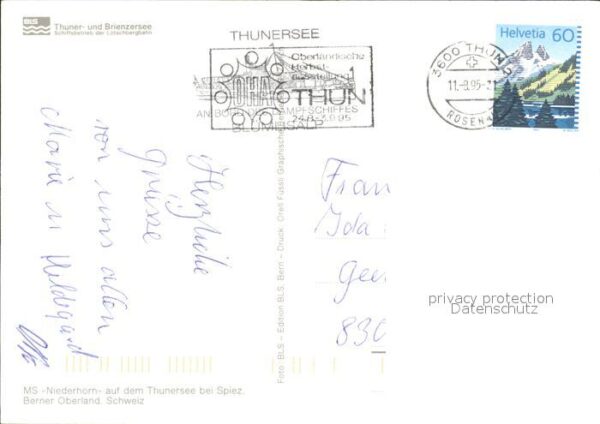 BLS
Thuner- und Brienzersee
Schiffsbetrieb der Lötschbergbahn
THUNERSEE
Oberländische
Herbst-
Ausstellung
OHA
THUN
AN BORD DES DAMPFSCHIFFES
24.8.-3.9.95
BLÜMLISALP
3600 THUN
11.-9.95
ROSENA
Helvetia 60
Herzliche
Grüsse
von uns allen
Marie u Hildegard
Foto: BLS – Edition BLS, Bern – Druck: Orell Füssli Graphische
Frau
Ida
830
privacy protection
Datenschutz
MS «Niederhorn» auf dem Thunersee bei Spiez.
Berner Oberland. Schweiz